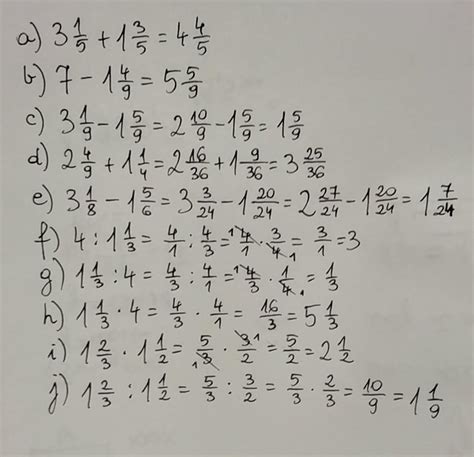 a) 3 1/5 + 1 3/5 = 4 4/5
b) 7 - 1 4/9 = 5 5/9
c) 3 1/9 - 1 5/9 = 2 10/9 - 1 5/9 = 1 5/9
d) 2 4/9 + 1 1/4 = 2 16/36 + 1 9/36 = 3 25/36
e) 3 1/8 - 1 5/6 = 3 3/24 - 1 20/24 = 2 27/24 - 1 20/24 = 1 7/24
f) 4 : 1 1/3 = 4/1 : 4/3 = 4/1 · 3/4 = 3/1 = 3
g) 1 1/3 : 4 = 4/3 : 4/1 = 4/3 · 1/4 = 1/3
h) 1 1/3 · 4 = 4/3 · 4/1 = 16/3 = 5 1/3
i) 1 2/3 · 1 1/2 = 5/3 · 3/2 = 5/2 = 2 1/2
j) 1 2/3 : 1 1/2 = 5/3 : 3/2 = 5/3 · 2/3 = 10/9 = 1 1/9